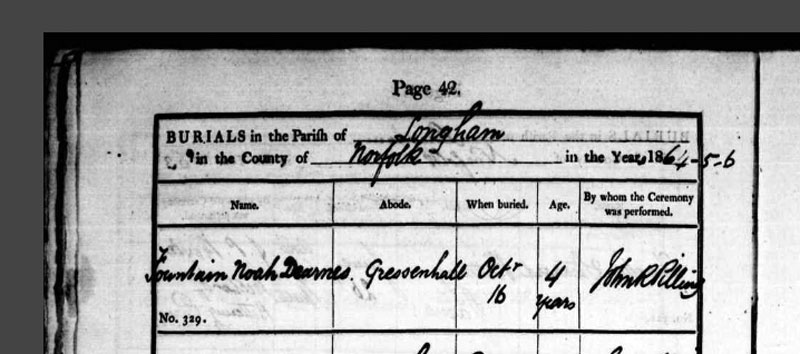 Page 42.
BURIALS in the Parish of Longham
in the County of Norfolk in the Year 1864-5-6
Name. Abode. When buried. Age. By whom the Ceremony was performed.
Fountain Noah Dearnes. Gressenhall Octr 16 4 years John R Pilling
No. 329.